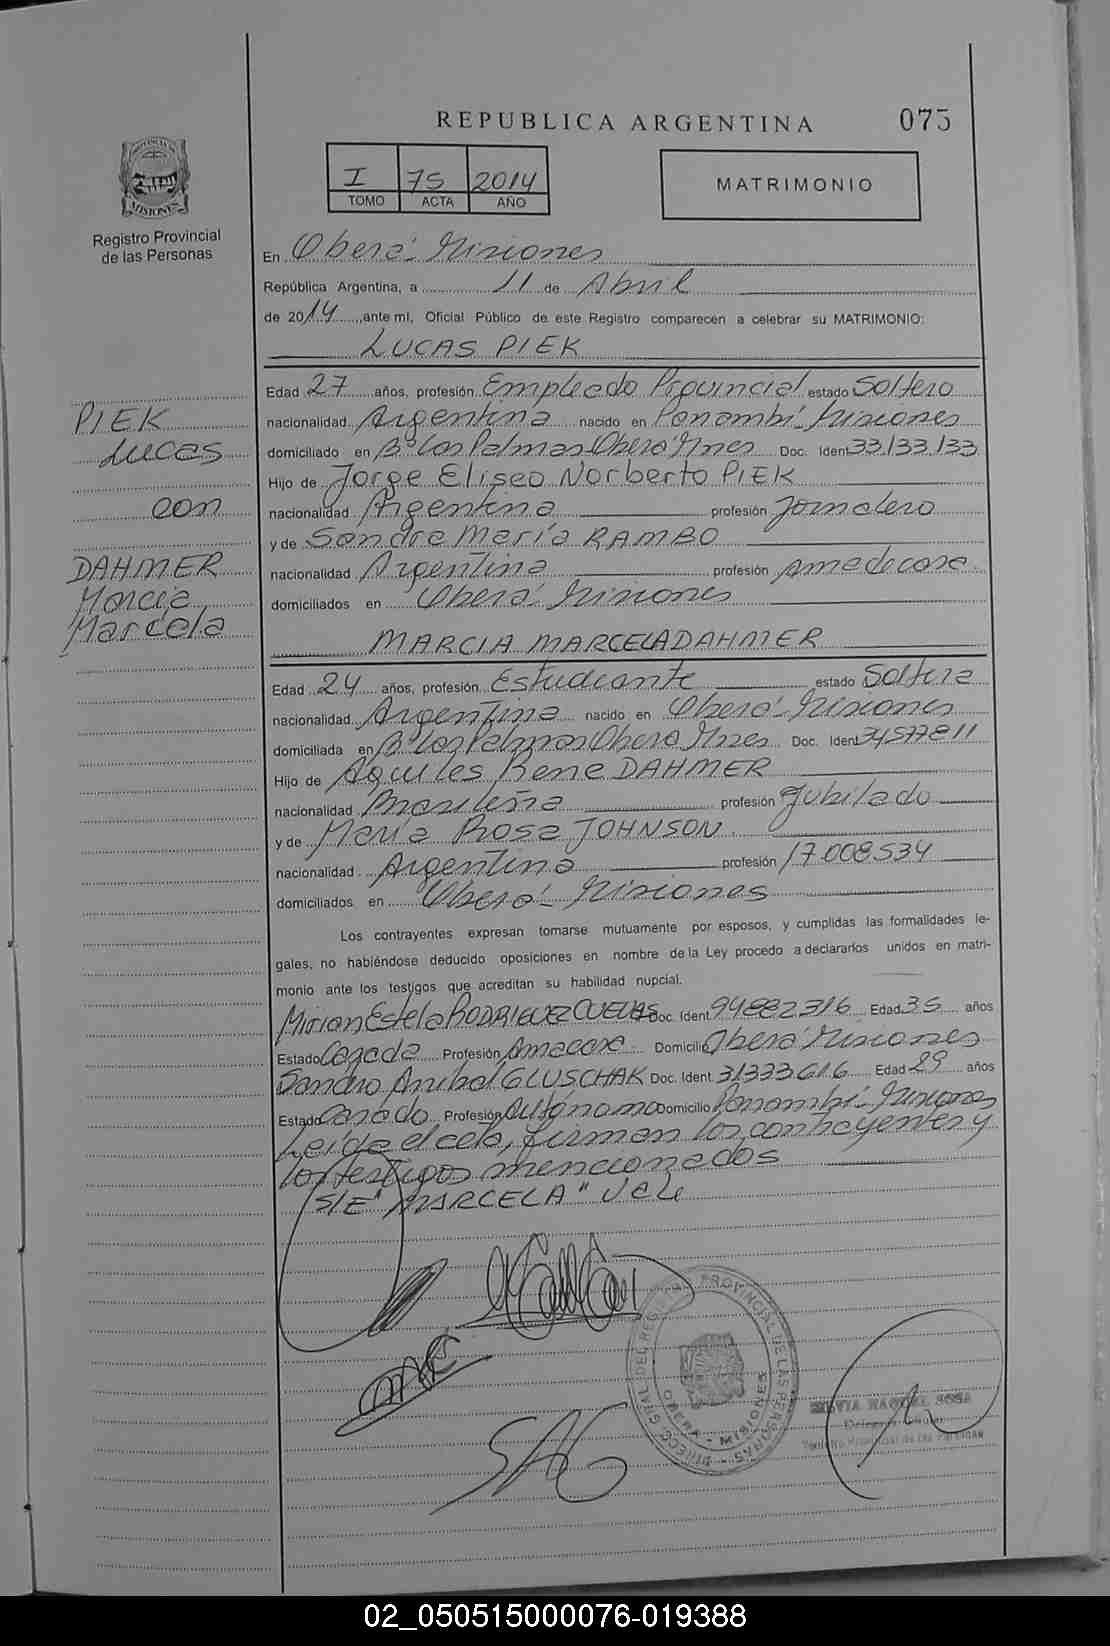 REPUBLICA ARGENTINA
075
I 75 2014
TOMO ACTA AÑO
MATRIMONIO
PROVINCIA DE
MISIONES
Registro Provincial
de las Personas
En Oberá - Misiones
República Argentina, a 11 de Abril
de 2014, ante mi, Oficial Público de este Registro comparecen a celebrar su MATRIMONIO:
LUCAS PIEK
Edad 27 años, profesión Empleado Provincial estado Soltero
nacionalidad Argentina nacido en Panambí - Misiones
domiciliado en Bº Las Palmas Oberá Mnes Doc. Ident 33133133
Hijo de Jorge Eliseo Norberto PIEK
nacionalidad Argentina profesión Jornalero
y de Sandra María RAMBO
nacionalidad Argentina profesión Ama de casa
domiciliados en Oberá - Misiones
MARCIA MARCELA DAHMER
PIEK
Lucas
con
DAHMER
Marcia
Marcela
Edad 24 años, profesión Estudiante estado Soltera
nacionalidad Argentina nacido en Oberá - Misiones
domiciliada en Bº Las Palmas Oberá Mnes Doc. Iden 34577811
Hijo de Aquiles Rene DAHMER
nacionalidad Brasileña profesión Jubilado
y de María Rosa JOHNSON
nacionalidad Argentina profesión 17008534
domiciliados en Oberá - Misiones
Los contrayentes expresan tomarse mutuamente por esposos, y cumplidas las formalidades le-
gales, no habiéndose deducido oposiciones en nombre de la Ley procedo a declararlos unidos en matri-
monio ante los testigos que acreditan su habilidad nupcial.
Mirian Estela RODRIGUEZ CUEVAS Doc. Ident 94882316 Edad 35 años
Estado Casada Profesión Ama casa Domicilio Oberá Misiones
Sandro Anibal GLUSCHAK Doc. Ident 31333616 Edad 29 años
Estado Casado Profesión Autónomo Domicilio Panambí - Misiones
Leída el acta, firman los contrayentes y
los testigos mencionados
S/E "MARCELA" Vale
DIRECC. GRAL. DEL REGISTRO PROVINCIAL DE LAS PERSONAS
OBERA - MISIONES
SILVIA RAQUEL SOSA
Registro Provincial de las Personas
02_050515000076-019388